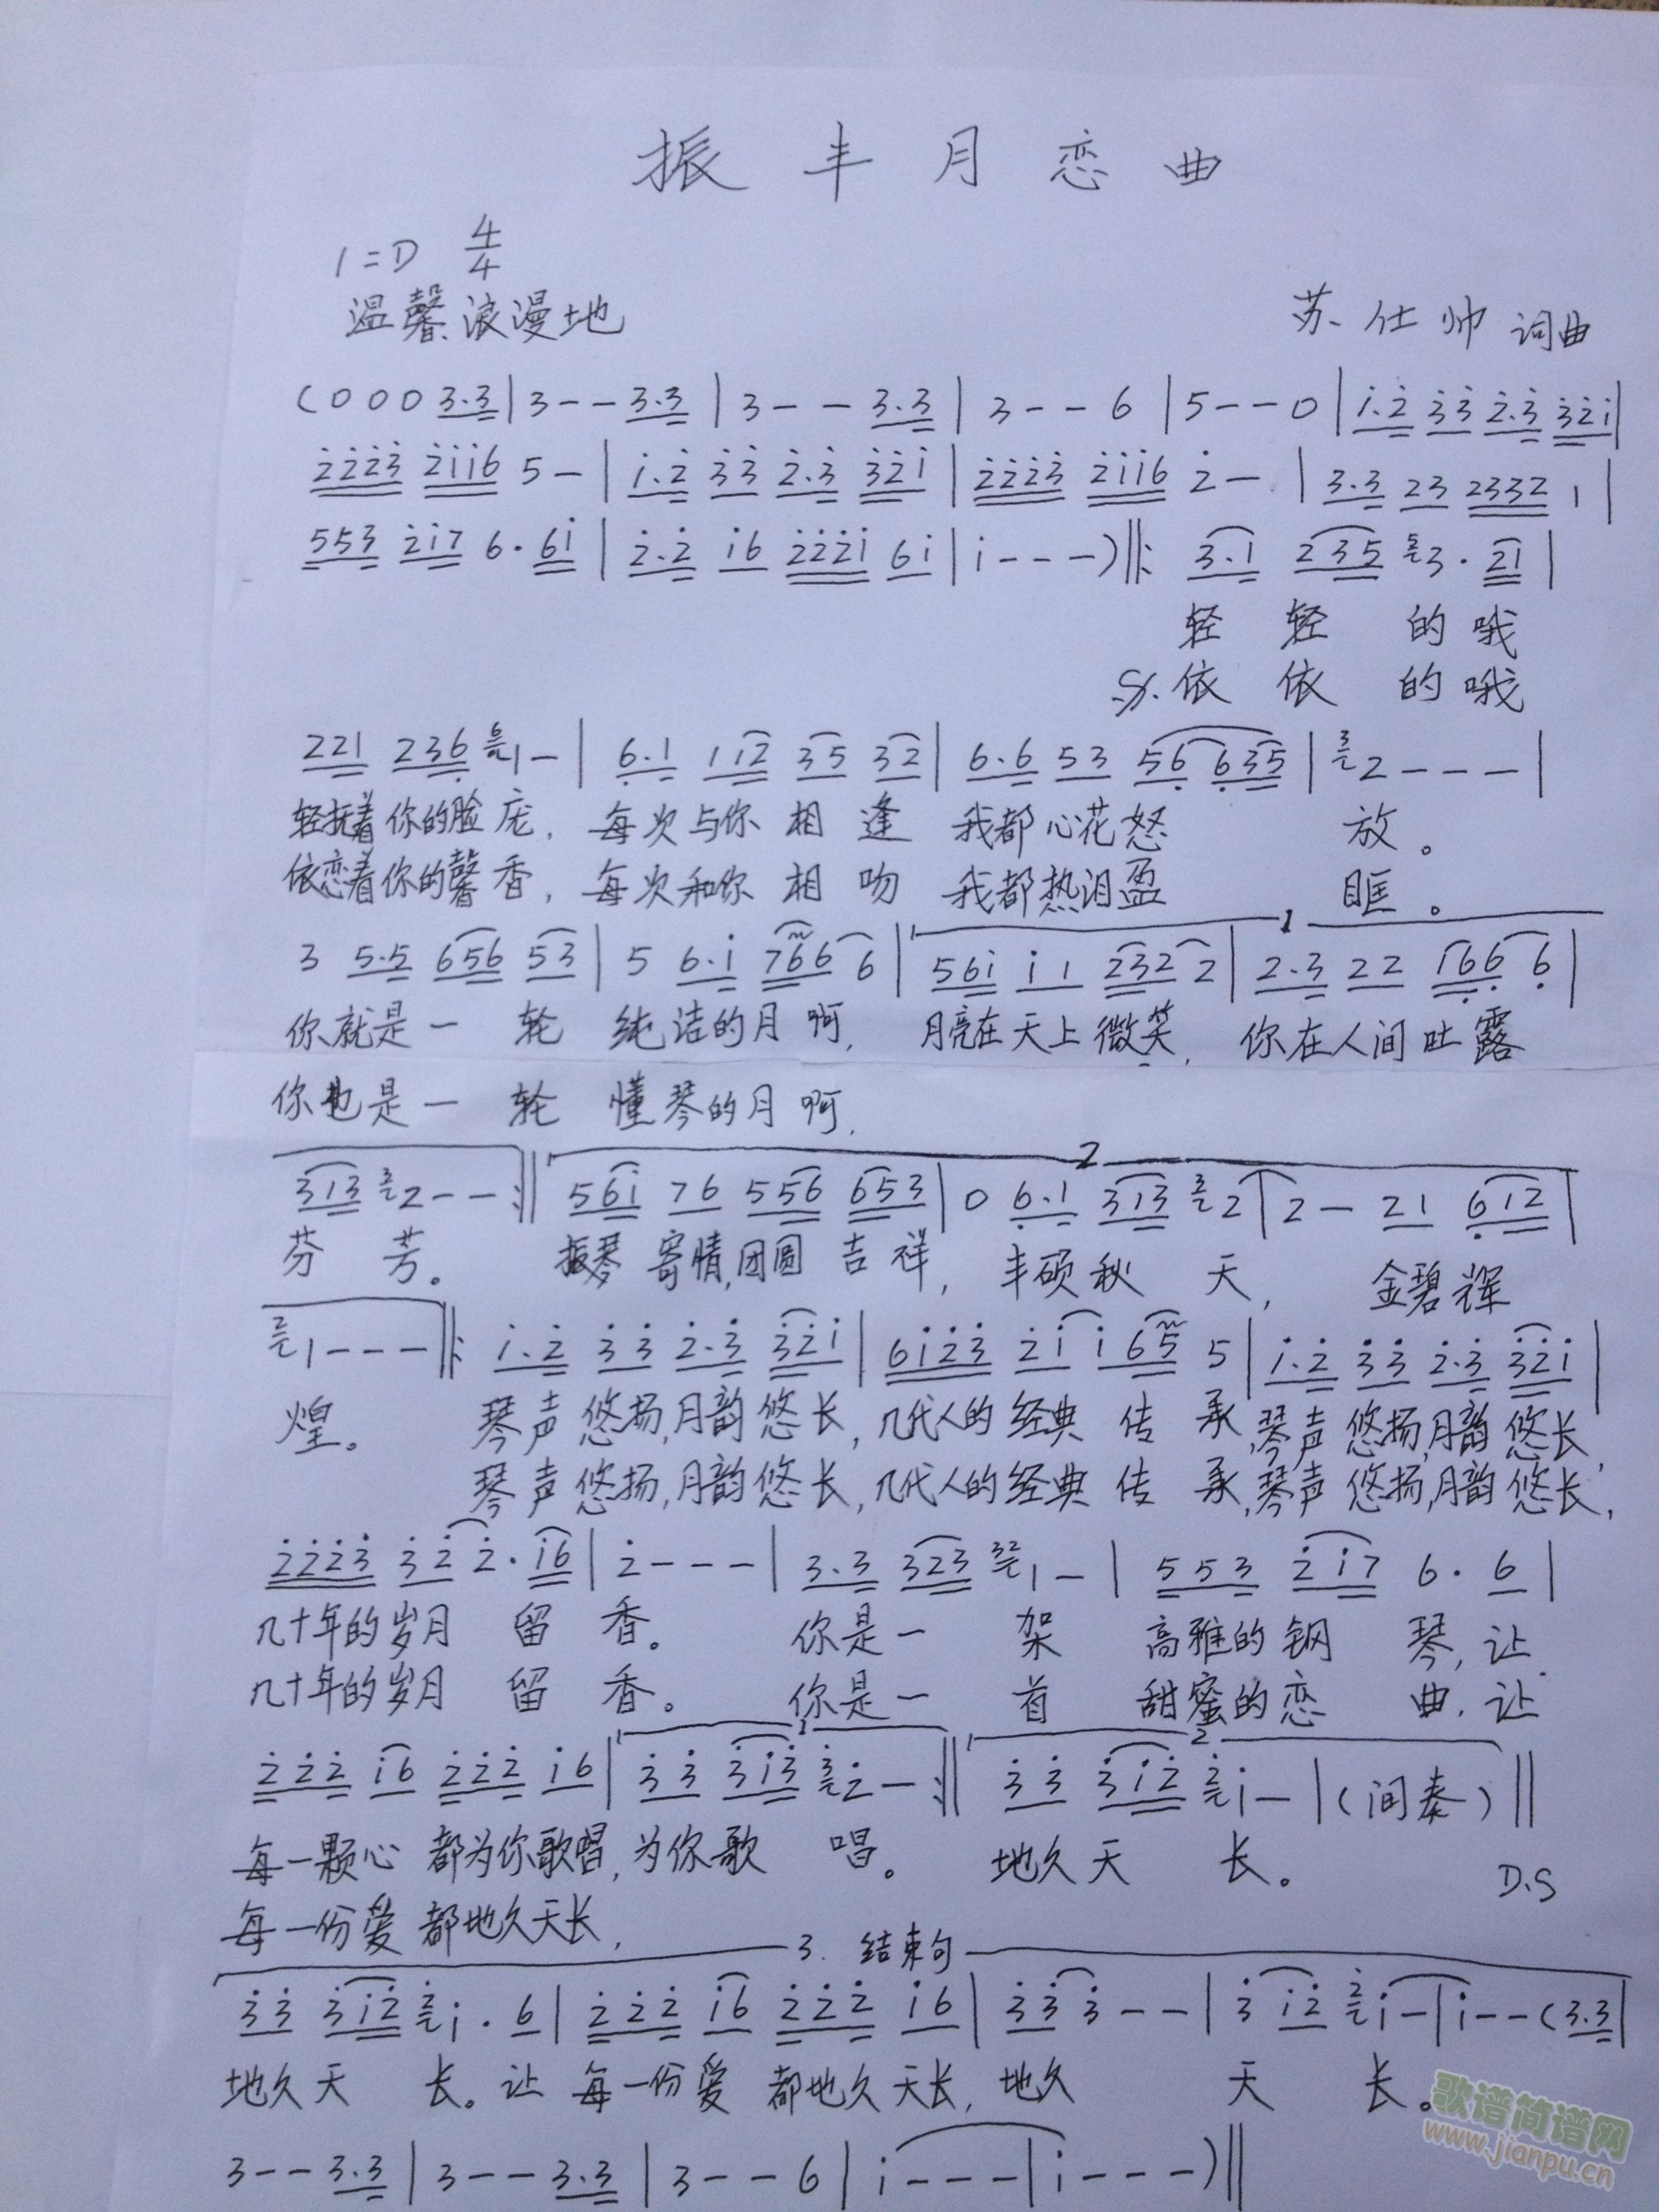 振丰月恋曲
1=D 4/4
温馨、浪漫地
苏仕帅 词曲
(0 0 0 3.3 | 3 - - 3.3 | 3 - - 3.3 | 3 - - 6 | 5 - - 0 | i.2̇ 3̇3̇ 2̇.3̇ 3̇2̇i |
2̇2̇2̇3̇ 2̇ii6 5 - | i.2̇ 3̇3̇ 2̇.3̇ 3̇2̇i | 2̇2̇2̇3̇ 2̇ii6 2̇ - | 3.3 23 2332 1 |
553 2̇i7 6. 6i | 2̇.2̇ i6 2̇2̇2̇i 6i | i - - -) ‖: 3.1 235 5 3. 21 |
轻 轻 的 哦
S. 依 依 的 哦
221 236̣ 6 1 - | 6̣.1 112 35 32 | 6.6 53 56̣ 6̣35 | 3 2 - - - |
轻抚着你的脸庞, 每次与你相逢 我都心花怒 放。
依恋着你的馨香, 每次和你相吻 我都热泪盈 眶。
1
3 5.5 656 53 | 5 6.i 766 6 | 56i i1 232 2 | 2.3 22 16̣6̣ 6̣ |
你就是一 轮 纯洁的月啊, 月亮在天上微笑, 你在人间吐露
你也是一 轮 懂琴的月啊,
2
313 3 2 - - :‖ 56i 76 556 653 | 0 6̣.1 313 3 2 | 2 - 21 6̣12 |
芬 芳。 振琴寄情,团圆吉祥, 丰硕秋 天, 金碧辉
2 1 - - - ‖: i.2̇ 3̇3̇ 2̇.3̇ 3̇2̇i | 6i2̇3̇ 2̇i i65 5 | i.2̇ 3̇3̇ 2̇.3̇ 3̇2̇i |
煌。 琴声悠扬,月韵悠长, 几代人的经典传 承,琴声悠扬,月韵悠长,
琴声悠扬,月韵悠长, 几代人的经典传 承,琴声悠扬,月韵悠长,
2̇2̇2̇3̇ 3̇2̇ 2̇. i6 | 2̇ - - - | 3.3 323 32 1 - | 553 2̇i7 6. 6 |
几十年的岁月 留 香。 你是一 架 高雅的钢 琴, 让
几十年的岁月 留 香。 你是一 首 甜蜜的恋 曲, 让
1 2
2̇2̇2̇ i6 2̇2̇2̇ i6 | 3̇3̇ 3̇i3̇ 3̇ 2̇ - :‖ 3̇3̇ 3̇i2̇ 2̇ i - | (间奏) ‖
每一颗心 都为你歌唱,为你歌 唱。 地久天 长。
D.S
每一份爱 都地久天长,
3. 结束句
3̇3̇ 3̇i2̇ 2̇ i. 6 | 2̇2̇2̇ i6 2̇2̇2̇ i6 | 3̇3̇ 3̇ - - | 3̇ i2̇ 2̇ i - | i - - (3.3 |
地久天 长。让 每一份爱 都地久天长, 地久 天 长。
3 - - 3.3 | 3 - - 3.3 | 3 - - 6 | i - - - | i - - -) ‖
歌谱简谱网
www.jianpu.cn